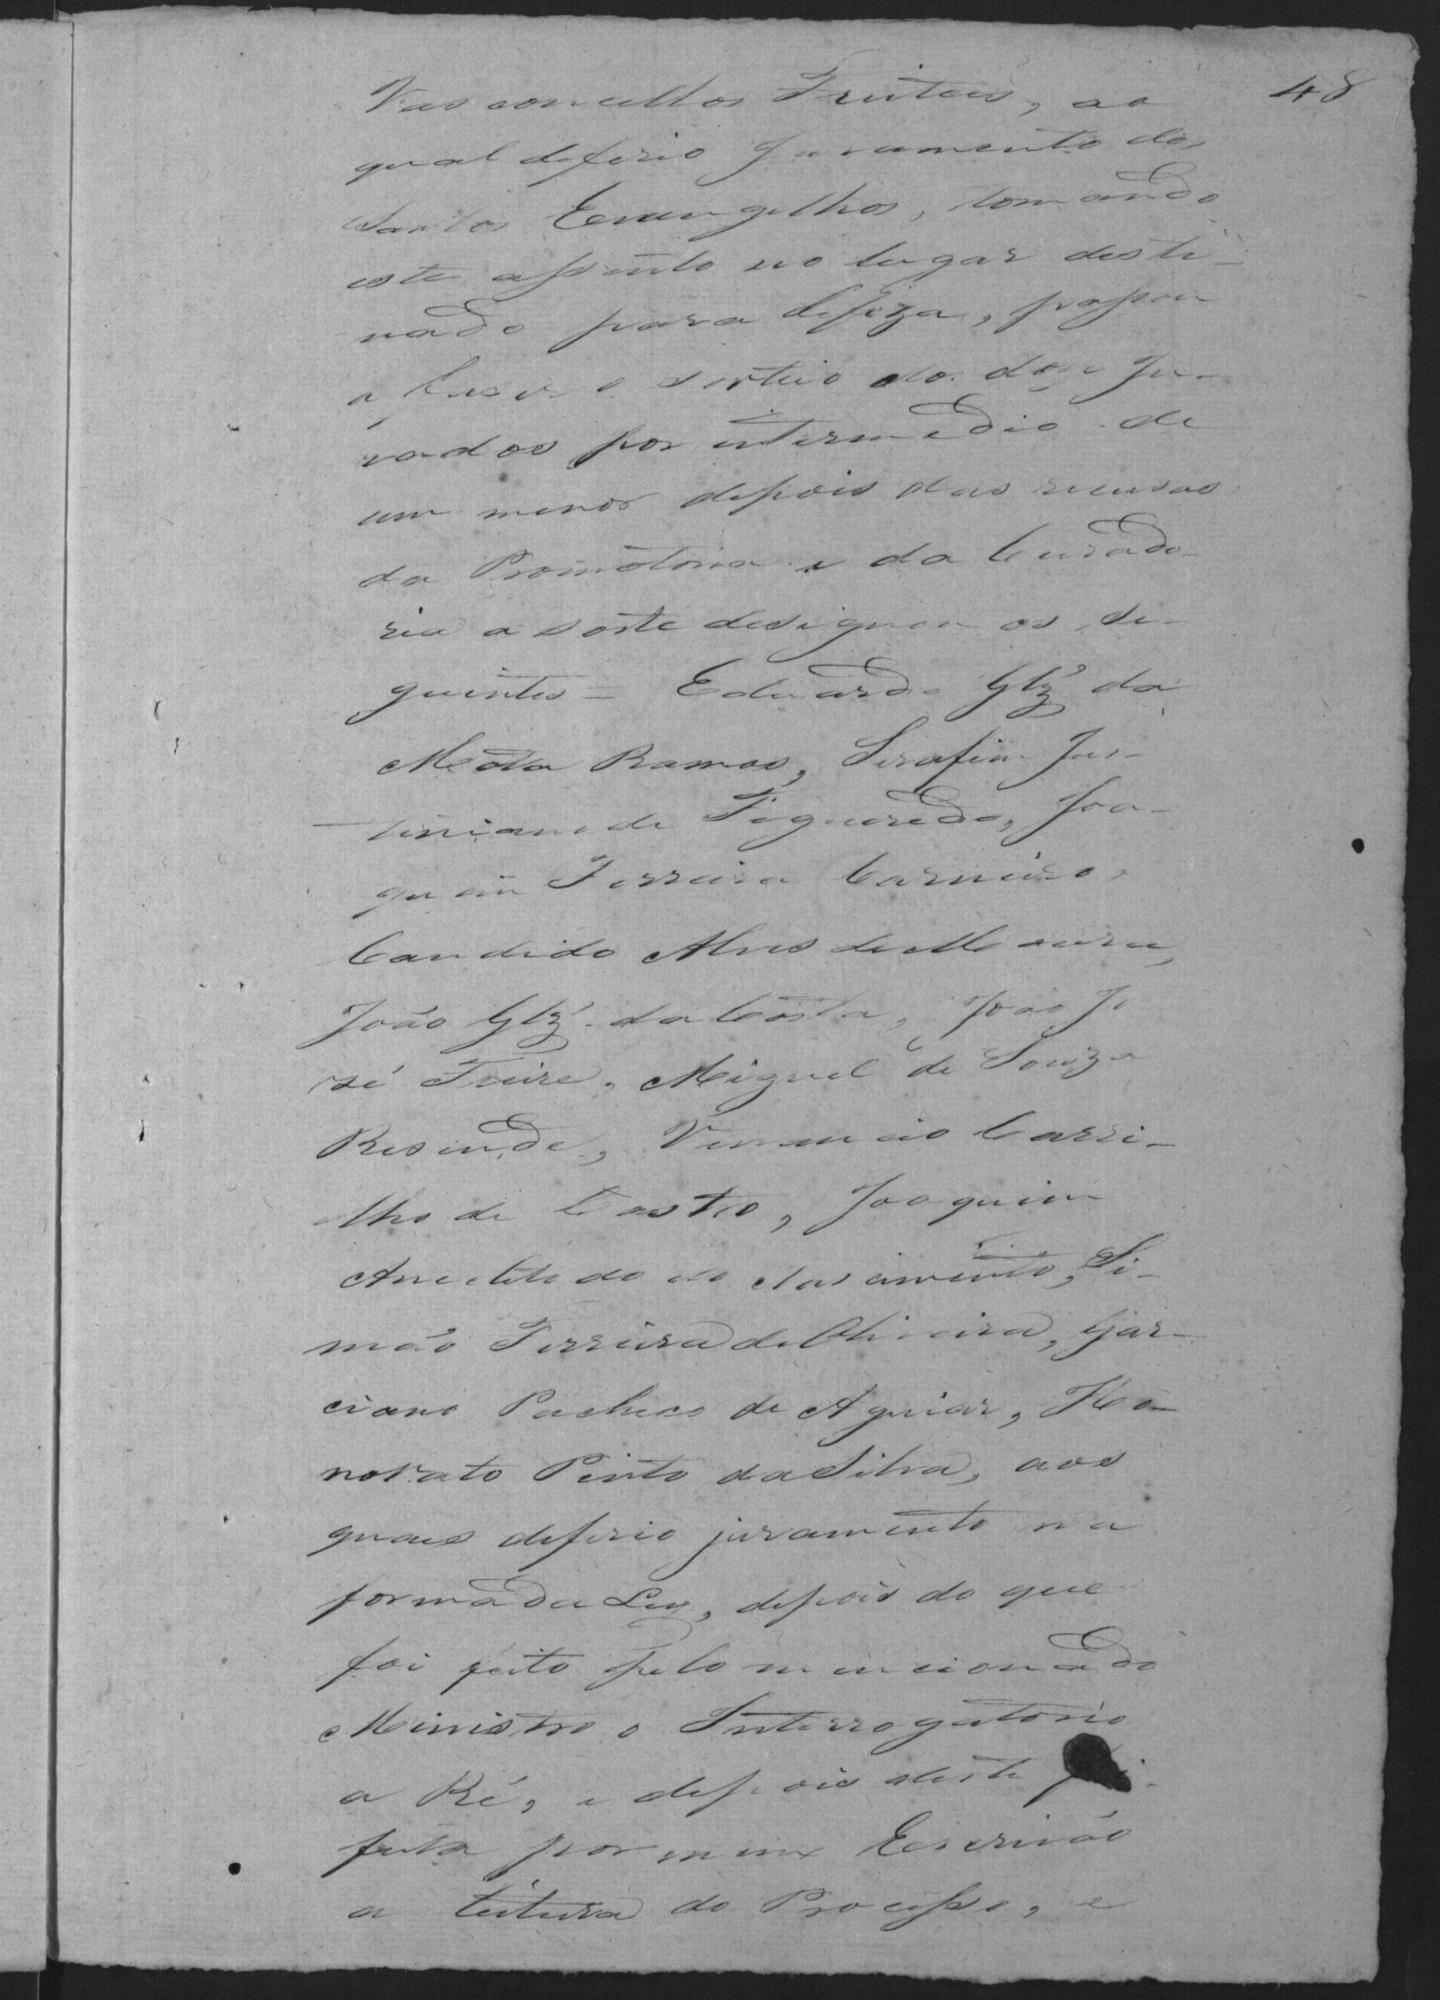 48
Vasconcellos Fruteis, ao
qual deferio juramento dos
Santos Evangelhos, tomando
este assento no lugar desti-
nado para defeza, passou
a fazer o sorteio dos doze Ju-
rados por intermedio de
um menor depois das recusas
da Promotoria e da Curado-
ria a sorte designou os se-
guintes = Eduardo Glz' da
Motta Ramos, Serafim Jus-
tiniano de Figueredo, Joa-
quim Ferreira Carneiro,
Candido Alves de Moura,
João Glz' da Costa, João Jo
sé Freire, Miguel de Souza
Resende, Venancio Carri-
lho de Castro, Joaquim
Anecleto do Nascimento, Si-
mão Ferreira de Oliveira, Gar-
ciano Pacheco de Aguiar, Ho-
norato Pinto da Silva, aos
quaes deferio juramento na
forma da Ley, depois do que
foi feito pelo mencionado
Ministro o Interrogatorio
a Ré, e depois deste foi
feita por mim Escrivão
a leitura do Processo, e